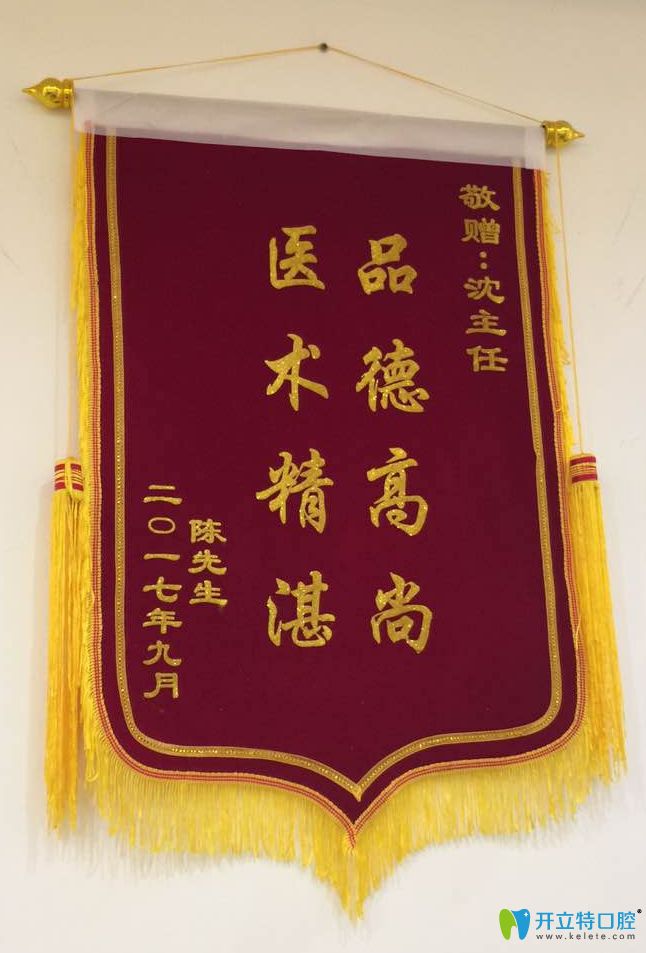 敬赠：沈主任
品德高尚
医术精湛
陈先生
二〇一七年九月
开立特口腔®
www.kelete.com